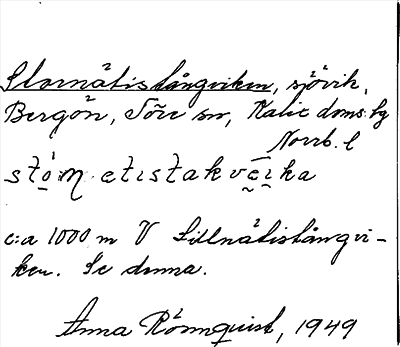 Stornätistångviken, sjövik,
Bergön, Töre sn, Kalix doms. hg
Norrb. l
c:a 1000 m V Lillnätistångvi-
ken. Se denna.
Anna Rönnquist, 1949